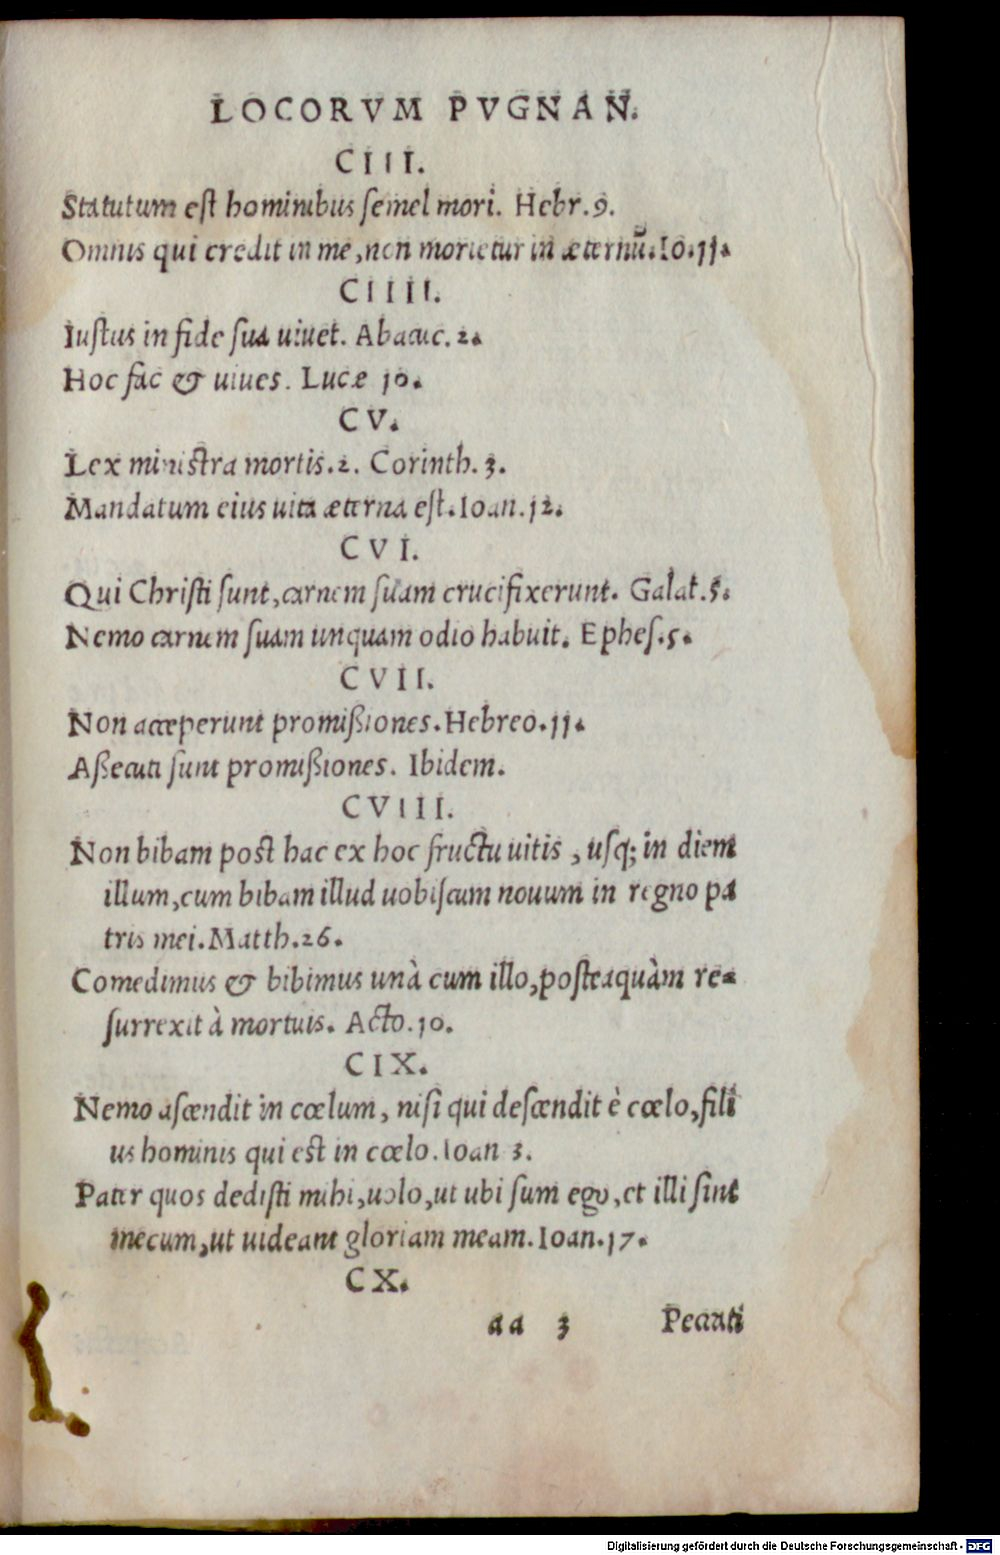 LOCORVM PVGNAN.
CIII.
Statutum eſt hominibus ſemel mori. Hebr.9.
Omnis qui credit in me,non morietur in æternũ.Io.11.
CIIII.
Iuſtus in fide ſua uiuet. Abacuc.2.
Hoc fac & uiues. Lucæ 10.
CV.
Lex miniſtra mortis.2. Corinth.3.
Mandatum eius uita æterna eſt.Ioan.12.
CVI.
Qui Chriſti ſunt,carnem ſuam crucifixerunt. Galat.5.
Nemo carnem ſuam unquam odio habuit. Epheſ.5.
CVII.
Non acceperunt promißiones.Hebreo.11.
Aßecuti ſunt promißiones. Ibidem.
CVIII.
Non bibam poſt hac ex hoc fructu uitis , uſq; in diem
illum,cum bibam illud uobiſcum nouum in regno pa
tris mei.Matth.26.
Comedimus & bibimus unà cum illo,poſteaquàm re-
ſurrexit à mortuis. Acto.10.
CIX.
Nemo aſcendit in cœlum, niſi qui deſcendit è cœlo,fili
us hominis qui eſt in cœlo.Ioan 3.
Pater quos dediſti mihi,uolo,ut ubi ſum ego,et illi ſint
mecum,ut uideant gloriam meam.Ioan.17.
CX.
aa 3 Peccati
Digitalisierung gefördert durch die Deutsche Forschungsgemeinschaft - DFG